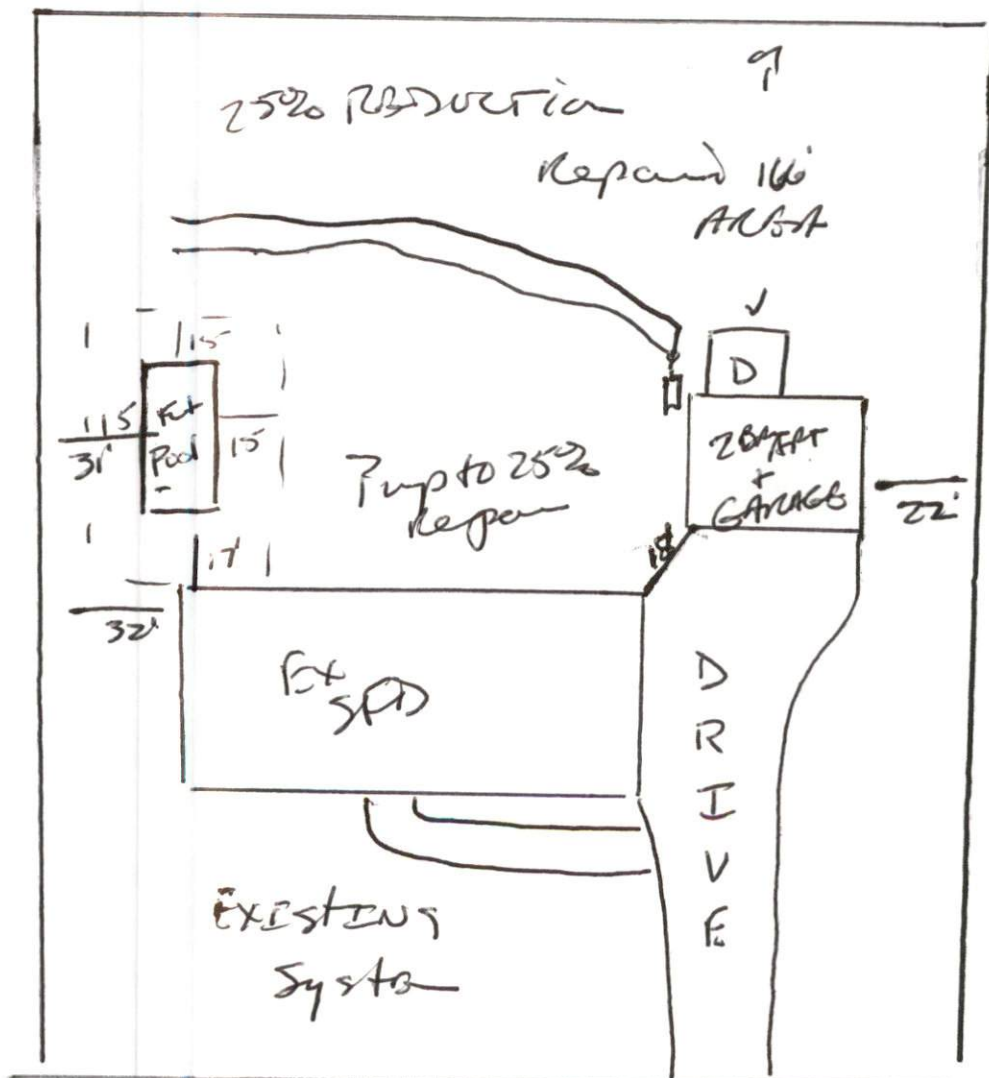 25% REDUCTION
Repair
AREA
15
D
115
31'
Fut
Pool
15
2 BR APT
+
GARAGE
22'
? up to 25%
Repair
18'
17'
32'
Ex
SFD
D
R
I
V
E
EXISTING
System